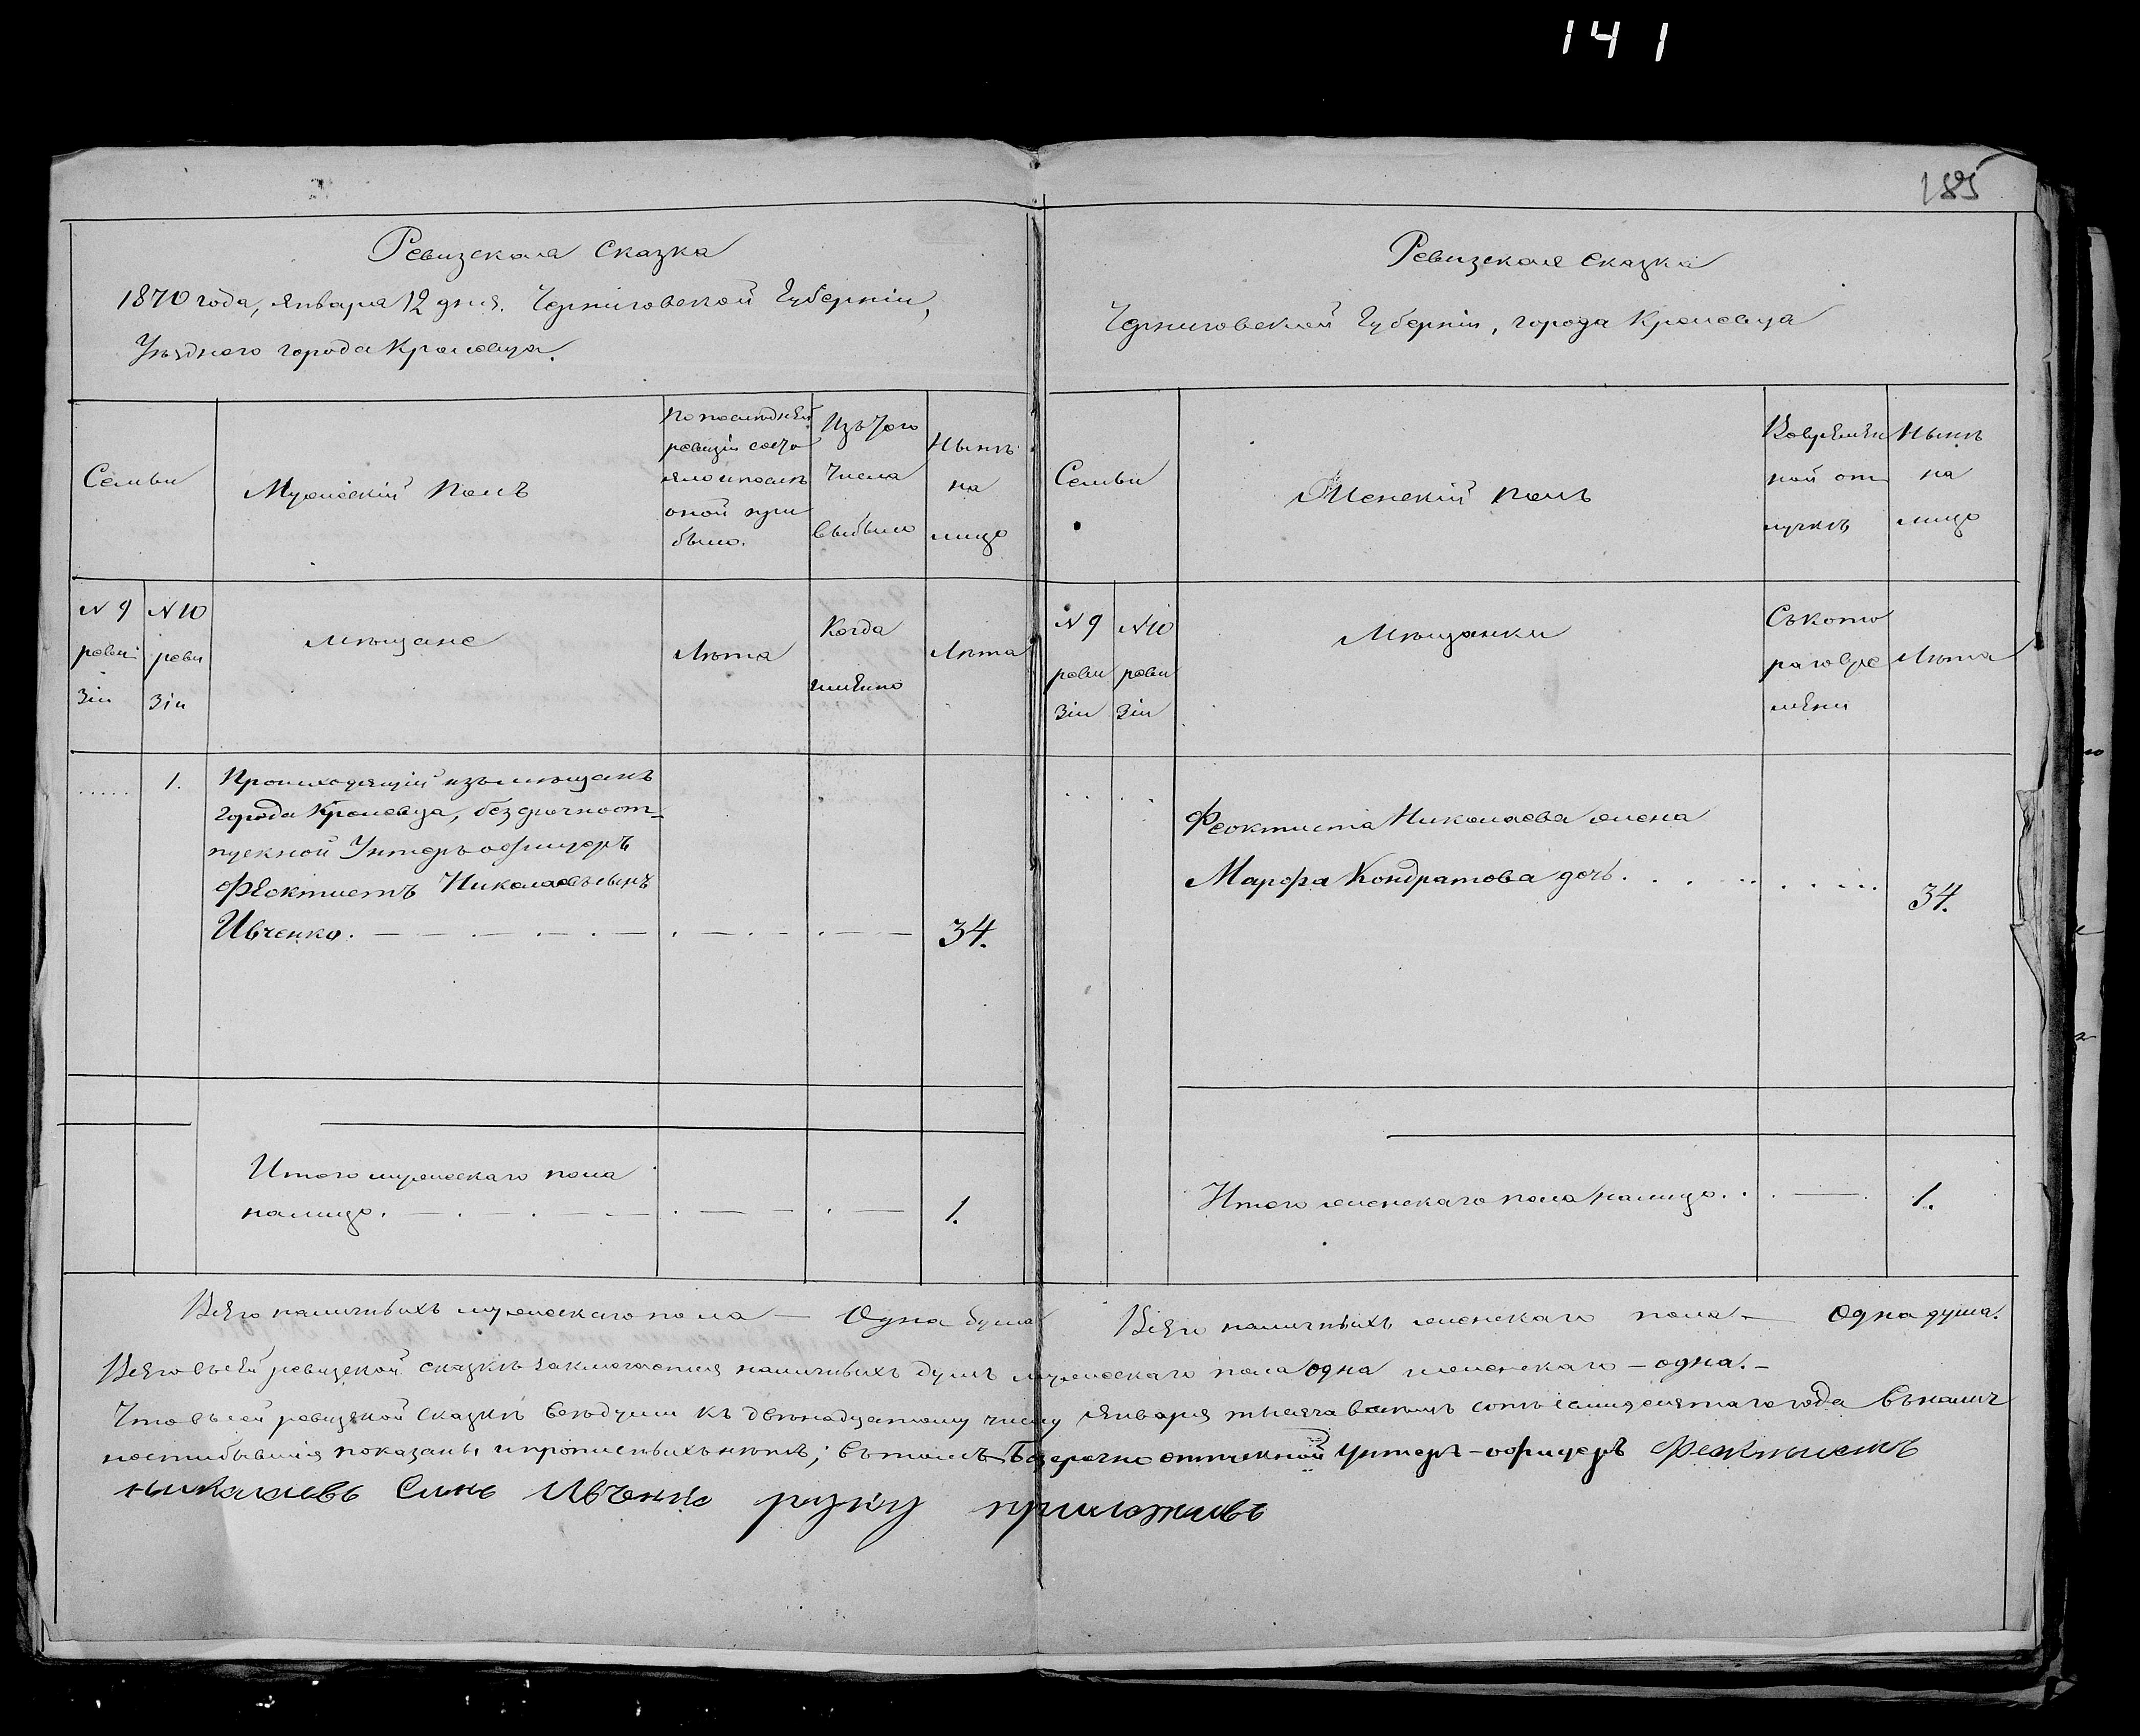 141
185
Ревизская сказка
1870 года, Января 12 дня. Черниговской Губерніи,
Уѣзднаго города Кролевца.
Семьи
Мужескій полъ
По послѣдней
ревизіи состо
яло и послѣ
оной при
было.
Изъ того
числа
выбыло
Нынѣ
на
лицо
№ 9
реви
зіи
№ 10
реви
зіи
Мѣщане
Лѣта
Когда
именно
Лѣта
1.
Происходящій изъ мѣщанъ
города Кролевца, безсрочноот-
пускной Унтеръ офицеръ
Феоктистъ Николаевъ сынъ
Ивченко. 34.
Итого мужескаго пола
налицо. 1.
Ревизская сказка
Черниговской Губерніи, города Кролевца
Семьи
Женскій полъ
Во времен
ной от
лучкѣ
Нынѣ
на
лицо
№ 9
реви
зіи
№ 10
реви
зіи
Мѣщанки
Съ кото
раго вре
мени
Лѣта
Феоктиста Николаева жена
Марфа Кондратова дочь. 34.
Итого женскаго пола налицо. 1.
Всего наличныхъ мужескаго пола — Одна душа
Всего наличныхъ женскаго пола — Одна душа.
Всего въ сей ревизской сказкѣ заключается наличныхъ душъ мужескаго пола одна женскаго — одна. —
Что въ сей ревизской сказкѣ всѣ души къ двѣнадцатому числу Января тысяча восемь сотъ семидесятаго года въ налич
ности бывшія показаны и прописныхъ нѣтъ; въ томъ Безсрочно отпускной Унтеръ-офицеръ Феоктистъ
Николаевъ Сынъ Ивченко руку приложивъ